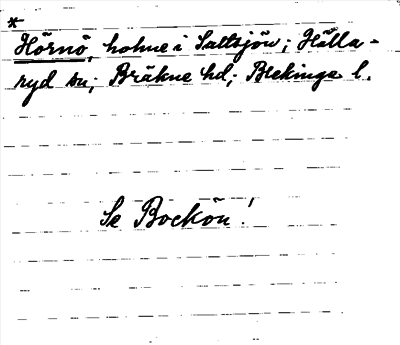 *
Hörnö, holme i Saltsjön; Hälla-
ryd sn; Bräkne hd; Blekinge l.
Se Bockön!